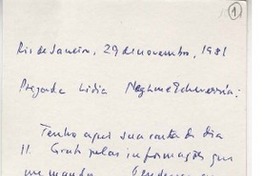 1
Rio de Janeiro, 29 de novembro, 1981
Prezada Lidia Neghme Echeverría:
Tenho aqui sua carta do dia
11. Grato pelas informações que
me manda.